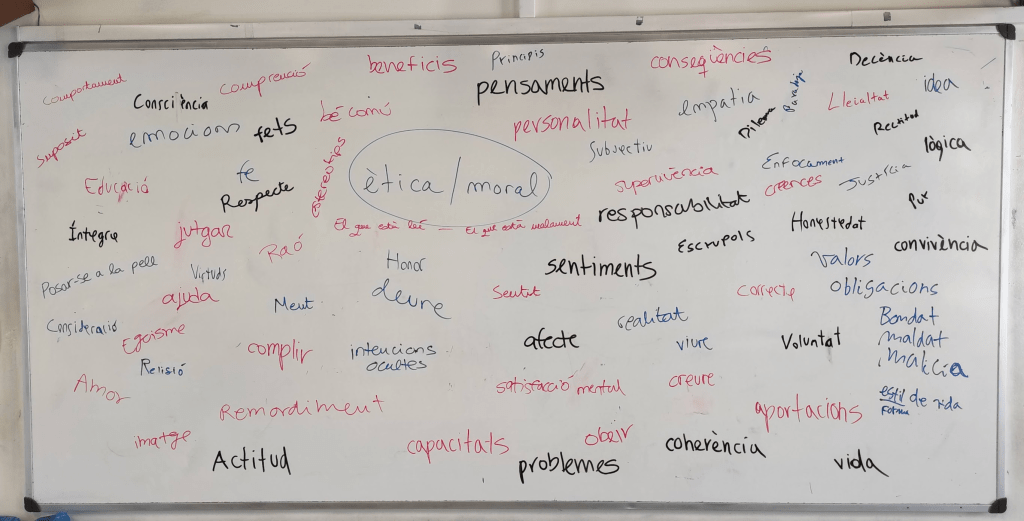 beneficis
Principis
conseqüències
Decència
comportament
Consciència
comprenció
pensaments
empatia
Paradoja
Lleialtat
idea
emocions
fets
bé comú
personalitat
Dilema
Rectitud
suposit
estereotips
Subjectiu
lògica
Educació
fe
Respecte
ètica/moral
supervivència
Enfocament
creences
Justícia
El que està bé — El que està malament
responsabilitat
Honestedat
Pur
Íntegre
jutgar
Raó
Escrupols
convivència
Posar-se a la pell
Virtuds
Honor
sentiments
valors
ajuda
Ment
deure
Sentit
correcte
obligacions
Consideració
Egoisme
realitat
Bondat
maldat
malícia
Relisió
complir
intencions
ocultes
afecte
viure
Voluntat
Amor
Remordiment
satisfacció mental
creure
aportacions
estil de vida
Forma
imatge
Actitud
capacitats
obeir
problemes
coherència
vida